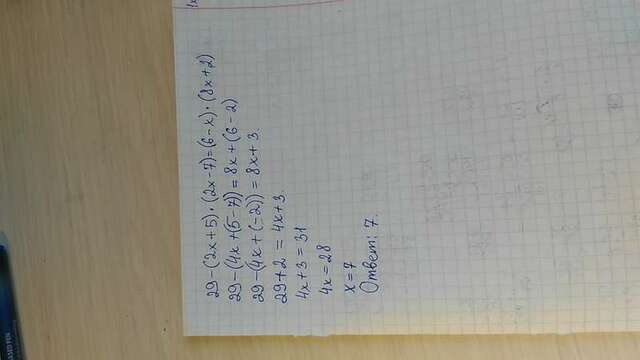 BASED PEN
29-(2x+5)·(2x-7)=(6-x)·(8x+2)
29-(4x+(5-7))=8x+(6-2)
29-(4x+(-2))=8x+3.
29+2=4x+3.
4x+3=31
4x=28
x=7
Ответ: 7.